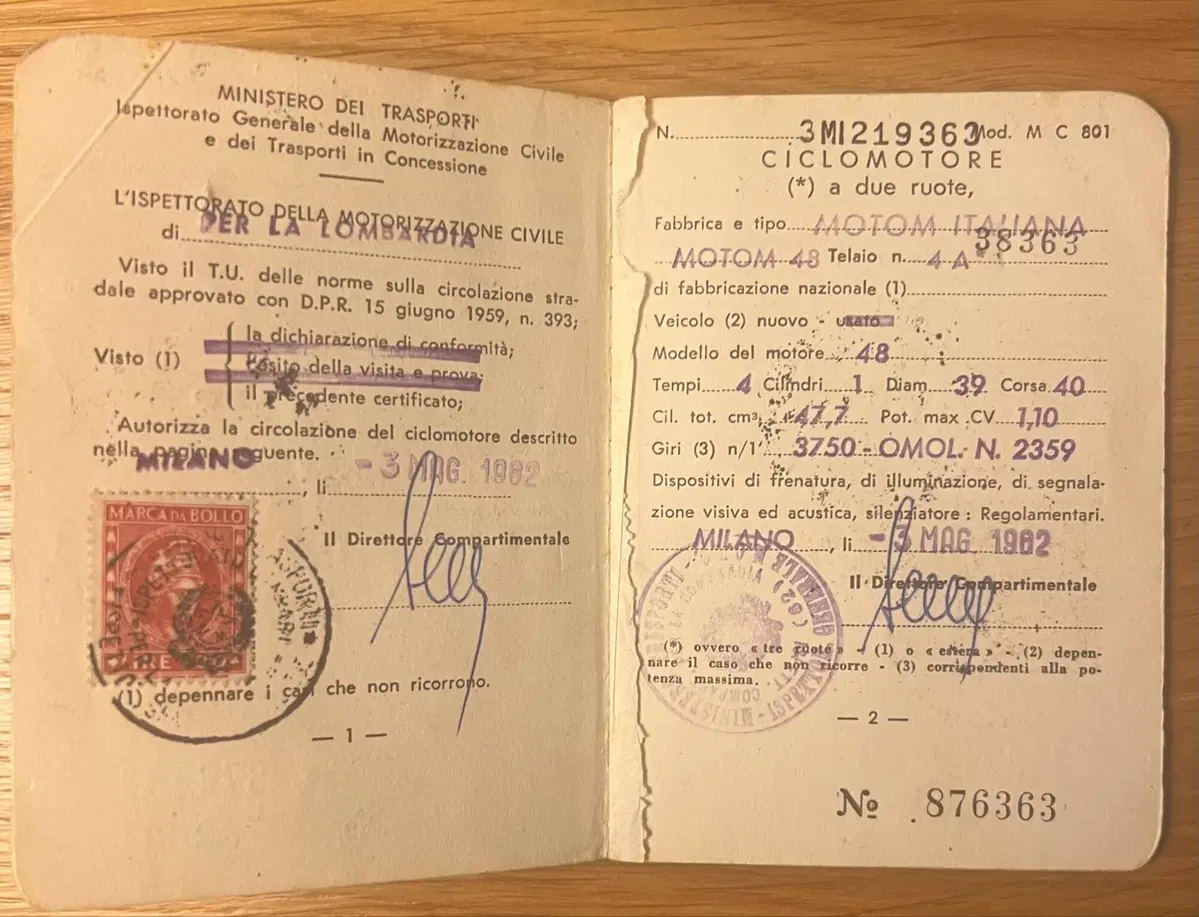 MINISTERO DEI TRASPORTI
Ispettorato Generale della Motorizzazione Civile
e dei Trasporti in Concessione
L'ISPETTORATO DELLA MOTORIZZAZIONE CIVILE
di PER LA LOMBARDIA
Visto il T.U. delle norme sulla circolazione stra-
dale approvato con D.P.R. 15 giugno 1959, n. 393;
la dichiarazione di conformità;
Visto (1) l'esito della visita e prova;
il precedente certificato;
Autorizza la circolazione del ciclomotore descritto
nella pagina seguente.
MILANO, lì -3 MAG. 1962
MARCA DA BOLLO
LIRE
Il Direttore Compartimentale
(1) depennare i casi che non ricorrono.
— 1 —
N. 3MI219363 Mod. M C 801
CICLOMOTORE
(*) a due ruote,
Fabbrica e tipo MOTOM ITALIANA
MOTOM 48 Telaio n. 4A* 38363
di fabbricazione nazionale (1)
Veicolo (2) nuovo - usato
Modello del motore 48
Tempi 4 Cilindri 1 Diam. 39 Corsa 40
Cil. tot. cm³ 47,7 Pot. max CV 1,10
Giri (3) n/1' 3750 - OMOL. N. 2359
Dispositivi di frenatura, di illuminazione, di segnala-
zione visiva ed acustica, silenziatore: Regolamentari.
MILANO, lì -3 MAG 1962
Il Direttore Compartimentale
(*) ovvero « tre ruote » - (1) o « estera » - (2) depen-
nare il caso che non ricorre - (3) corrispondenti alla po-
tenza massima.
— 2 —
№ 876363